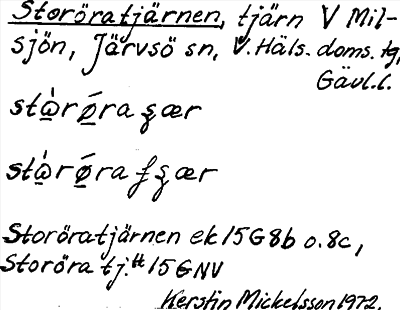 Storöratjärnen, tjärn V Mil-
sjön, Järvsö sn, V. Häls. doms. tg,
Gävl.l.
Storöratjärnen ek 15G8b o. 8c,
Storöra tj. 15 G NV
Kerstin Mickelsson 1972.